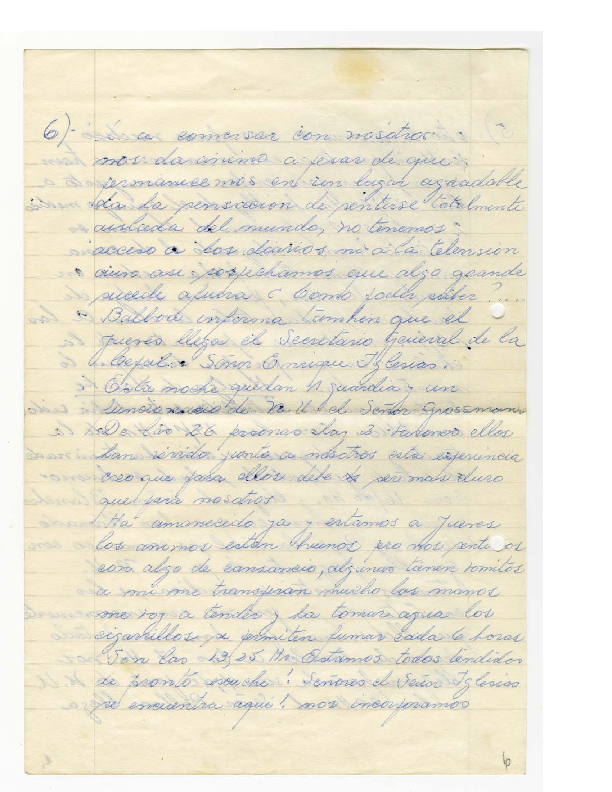 6)- a conversar con nosotros
nos da animo a pesar de que
permanecemos en un lugar agradable
da la sensacion de sentirse totalmente
aislada del mundo, no tenemos
acceso a los diarios ni a la television
aun asi sospechamos que algo grande
sucede afuera ¿ Como poder saber?....
Balboa informa tambien que el
jueves llega el Secretario General de la
Cepal: Señor Enrique Iglesias.
Esta noche quedan guardia y un
funcionario de N.U. el Señor Grossmann
De las 26 personas hay 3 varones ellos
han vivido junto a nosotros esta experiencia
creo que para ellos debe ser mas duro
que para nosotros
Ha amanecido ya y estamos a Jueves
los animos estan buenos pero nos sentimos
con algo de cansancio, algunas tienen vomitos
a mi me transpiran mucho las manos
me voy a tender y ha tomar agua los
cigarrillos se permiten fumar cada 6 horas
Son las 13,25 Hr. Estamos todos tendidos
de pronto escuche! Señores el Señor Iglesias
se encuentra aqui! nos incorporamos
6